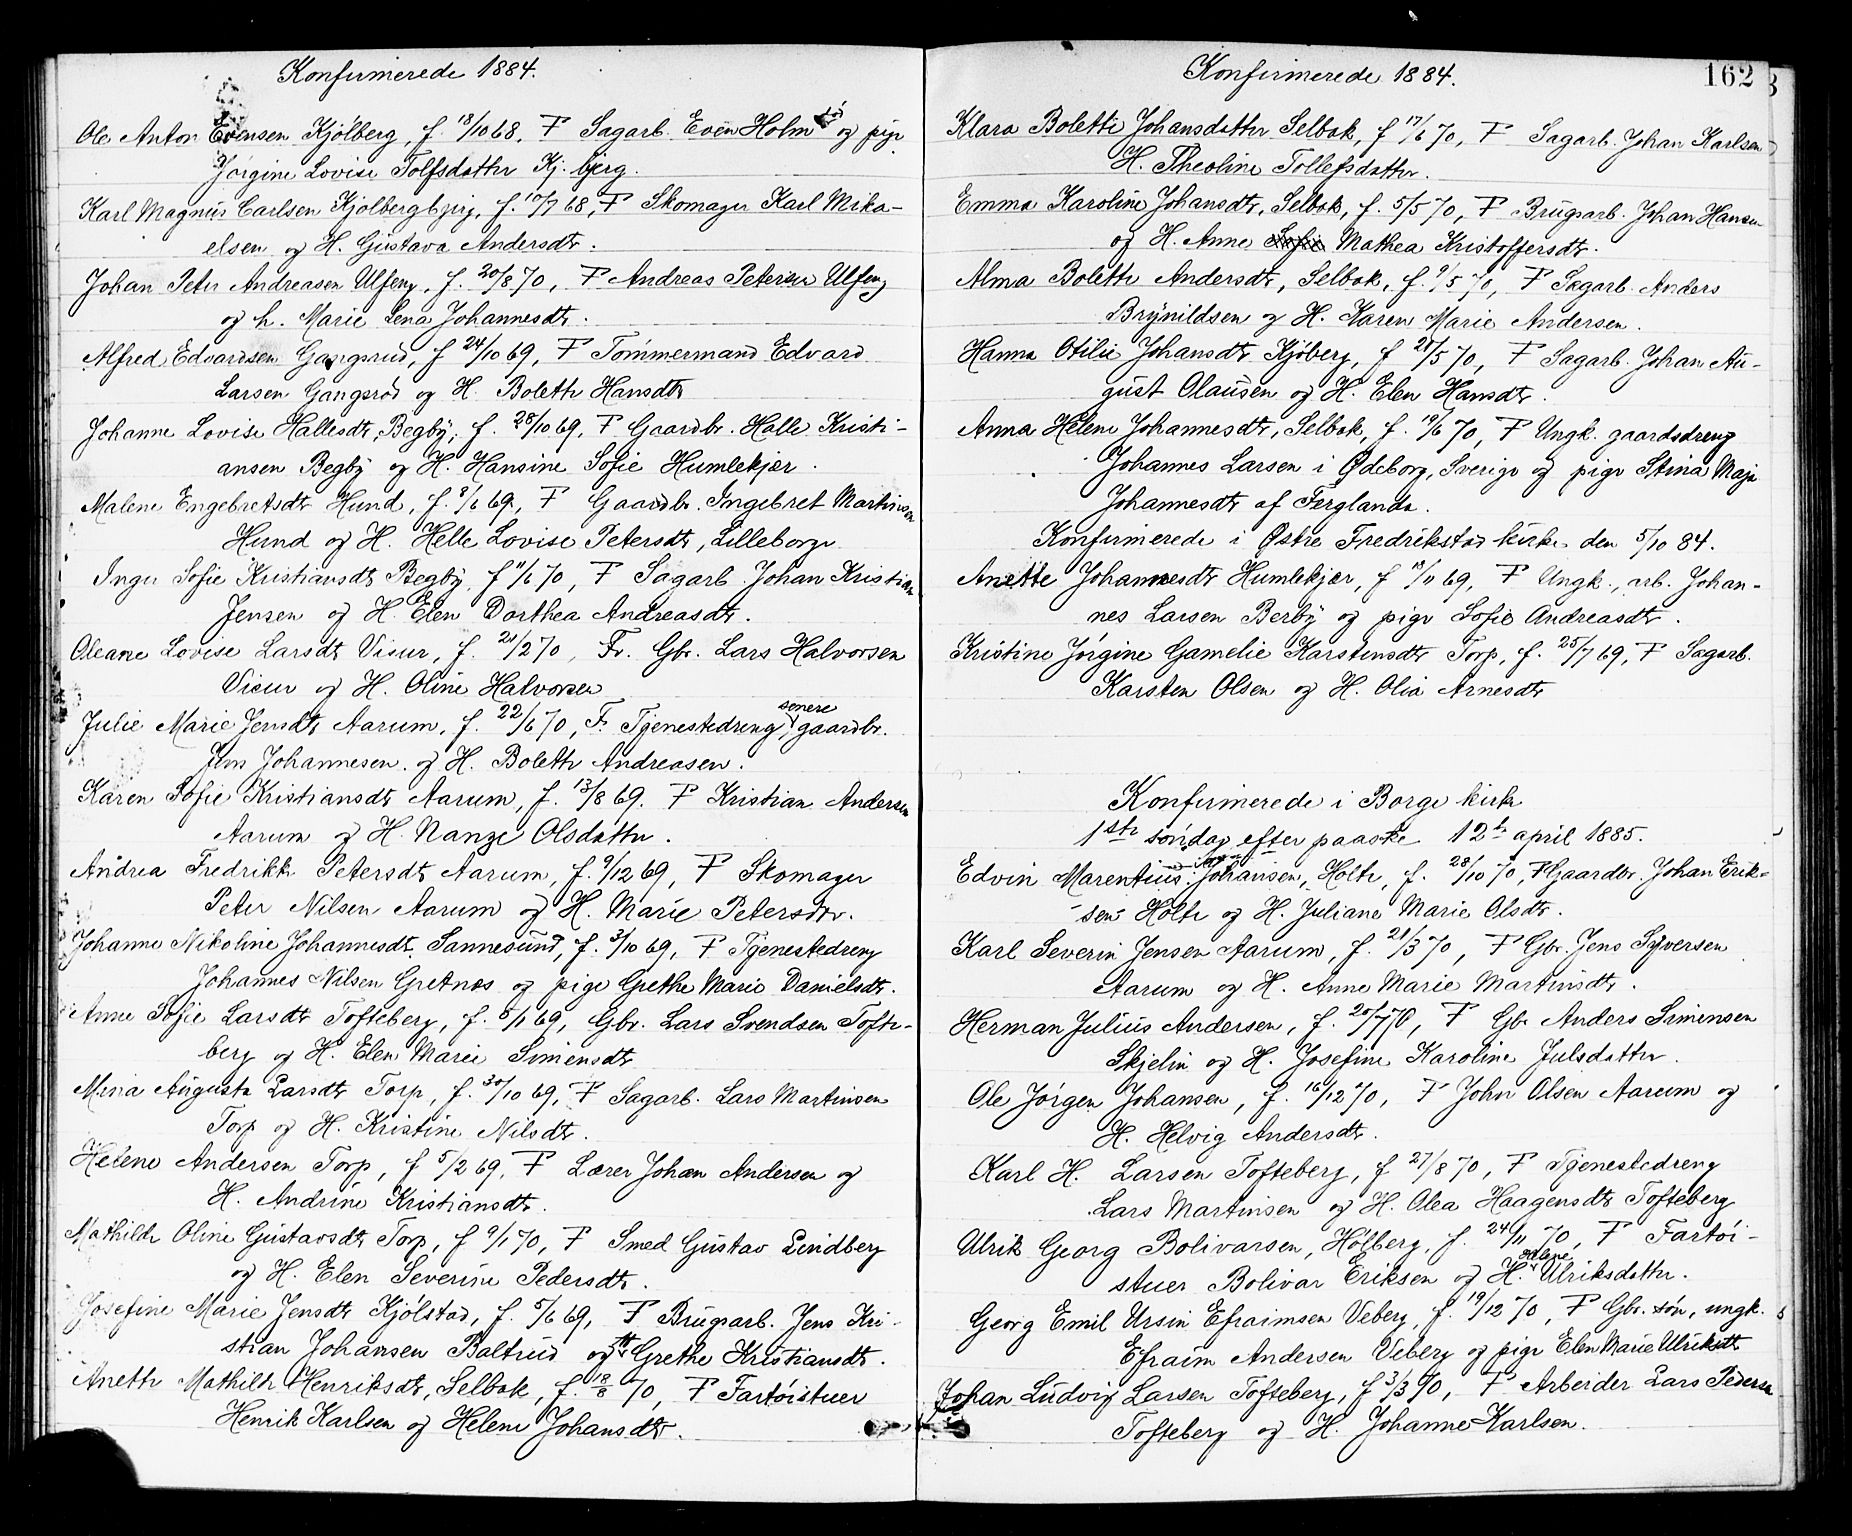 Konfirmerede 1884.
Ole Anton Evensen Kjölberg, f. 18/10 68, F Sagarb. Even Holm og pige
Jørgine Lovise Tolfsdatter Kj. bjerg.
Karl Magnus Carlsen Kjolbergbjerg, f. 10/7 68, F Skomager Karl Mika-
elsen og H. Gustava Andersdtr.
Johan Peter Andreasen Ulfeng, f. 20/8 70, F Andreas Petersen Ulfeng
og h. Marie Lena Johannesdtr.
Alfred Edvardsen Gangsrud, f 24/10 69, F Tømmermand Edvard
Larsen Gangsrød og H. Bolette Hansdtr
Johanne Lovise Hallesdtr, Begby, f. 28/10 69, F Gaardbr. Halle Kristi-
ansen Begby og H. Hansine Sofie Humlekjær.
Malene Engebretsdtr Hund, f. 8/6 69, F Gaardbr. Ingebret Martinsen
Hund og H. Helle Lovise Petersdtr, Lilleborge
Inger Sofie Kristiansdtr Begby, f 11/6 70, F Sagarb. Johan Kristian
Jensen og H. Elen Dorthea Andreasdtr.
Oleane Lovise Larsdtr Visur, f. 21/2 70, Fr. Gbr. Lars Halvorsen
Visur og H. Oline Halvorsen
Julie Marie Jensdtr Aarum, f. 22/6 70, F. Tjenestedreng, senere gaardbr.
Jens Johannesen og H. Bolette Andreasen.
Karen Sofie Kristiansdtr Aarum, f. 13/8 69. F Kristian Andersen
Aarum og H. Nanze Olsdatter.
Andrea Fredrikke Petersdtr Aarum, f. 9/12 69, F Skomager
Peter Nilsen Aarum og H. Marie Petersdtr.
Johanne Nikoline Johannesdtr. Sannesund, f. 3/10 69, F Tjenestedreng
Johannes Nilsen Gretnes og pige Grethe Marie Danielsdtr.
Anne Sofie Larsdtr Tofteberg, f. 5/11 69, Gbr. Lars Svendsen Tofte-
berg og H. Elen Marie Simensdtr
Mina Augusta Larsdtr Torp, f. 30/10 69, F Sagarb. Lars Martinsen
Torp og H. Kristine Nilsdtr.
Helene Andersen Torp, f 5/2 69, F Lærer Johan Andersen og
H. Andrine Kristiansdtr.
Mathilde Oline Gustavsdtr Torp, f 9/1 70, F Smed Gustav Lindberg
og H. Elen Severine Pedersdtr.
Josefine Marie Jensdtr Kjølstad, f. 5/6 69, F Brugsarb. Jens Kri-
stian Johansen Baltrud og H Grethe Kristiansdtr.
Anette Mathilde Henriksdtr, Selbak, f. 18/8 70, F Fartøistuer
Henrik Karlsen og Helene Johansdtr.
Konfirmerede 1884.
162
Klara Bolette Johansdatter, Selbak, f 17/6 70, F Sagarb. Johan Karlsen
H. Theoline Tollefsdatter.
Emma Karoline Johansdtr, Selbak, f. 5/5 70, F Brugsarb. Johan Hansen
og H. Anne Sofie Mathea Kristoffersdtr.
Alma Bolette Andersdtr, Selbak, f. 9/5 70, F Sagarb. Anders
Brynildsen og H. Karen Marie Andersen.
Hanna Otilie Johansdtr Kjöberg, f 28/5 70, F Sagarb. Johan Au-
gust Olausen og H. Elen Hansdtr.
Anna Helene Johannesdtr, Selbak, f. 19/6 70, F Ungk. gaardsdreng
Johannes Larsen i Ødeborg, Sverige og pige Stina Maja
Johannesdtr af Ferglanda.
Konfirmerede i Østre Fredrikstad kirke den 5/10 84.
Anette Johannesdtr Humlekjær, f 18/11 69, F Ungk., arb. Johan-
nes Larsen Berby og pige Sofie Andreasdtr.
Kristine Jørgine Gamelie Karstensdtr Torp, f. 25/7 69, F Sagarb.
Karsten Olsen og H. Olia Arnesdtr
Konfirmerede i Borge kirke
1ste søndag efter paaske 12te april 1885.
Edvin Marentius Johansen, Holte, f. 28/10 70, F Gaardbr. Johan Erik-
sen Holte og H. Juliane Marie Olsdtr.
Karl Severin Jensen Aarum, f. 21/3 70, F Gbr. Jens Syversen
Aarum og H. Anne Marie Martinsdtr.
Herman Julius Andersen, f. 20/7 70, F Gbr Anders Simensen
Skjelin og H. Josefine Karoline Julsdatter.
Ole Jørgen Johansen, f. 16/12 70, F John Olsen Aarum og
H. Helvig Andersdtr.
Karl H. Larsen Tofteberg, f 27/8 70, F Tjenestedreng
Lars Martinsen og H. Olea Haagensdtr Tofteberg
Ulrik Georg Bolivarsen, Hølberg, f. 24/11 70, F Fartøi-
stuer Bolivar Eriksen og H. Ulriksdatter.
Georg Emil Ursin Efraimsen Veberg, f. 19/12 70, F Gbr. søn, ungk.
Efraim Andersen Veberg og pige Elen Marie Ulriksdtr
Johan Ludvig Larsen Tofteberg, f 3/3 70, F Arbeider Lars Pedersen
Tofteberg og H. Johanne Karlsen.